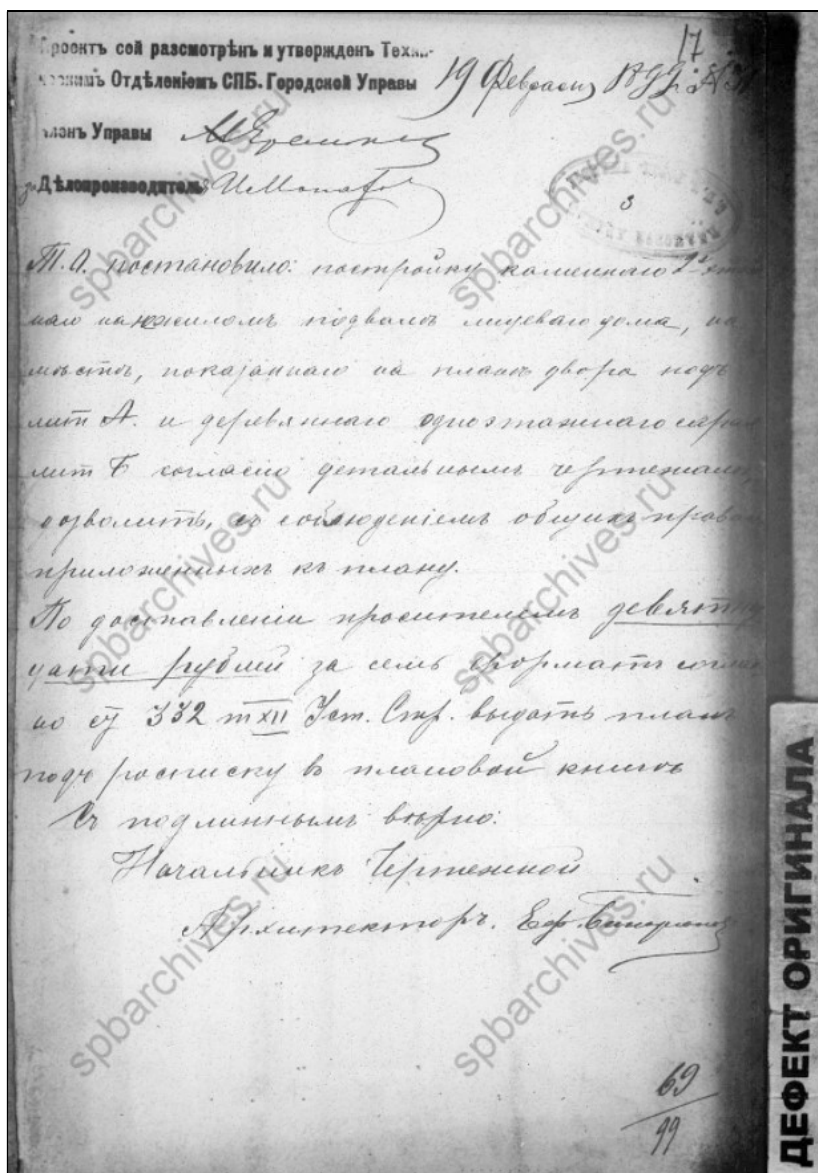 17
Проектъ сей разсмотрѣнъ и утвержденъ Техни-
ческимъ Отдѣленіемъ СПБ. Городской Управы 19 Февраля 1899 г.
Членъ Управы
за Дѣлопроизводитель
3
Т.О. постановило: постройку каменнаго 2хъ этаж
наго на жиломъ подвалѣ лицеваго дома, на
мѣстѣ, показаннаго на планѣ двора подъ
лит А. и деревяннаго одноэтажнаго сарая
лит Б согласно детальнымъ чертежамъ,
дозволить, съ соблюденіемъ общихъ правилъ
приложенныхъ къ плану.
По доставленіи просителемъ девятнад
цати рублей за семь форматъ соглас
но ст 332 т XII Уст. Стр. выдать планъ
подъ росписку въ плановой книгѣ
Съ подлиннымъ вѣрно:
Начальникъ Чертежной
Архитекторъ. Еф.
69
99
ДЕФЕКТ ОРИГИНАЛА
spbarchives.ru
spbarchives.ru
spbarchives.ru
spbarchives.ru
spbarchives.ru
spbarchives.ru
spbarchives.ru
spbarchives.ru